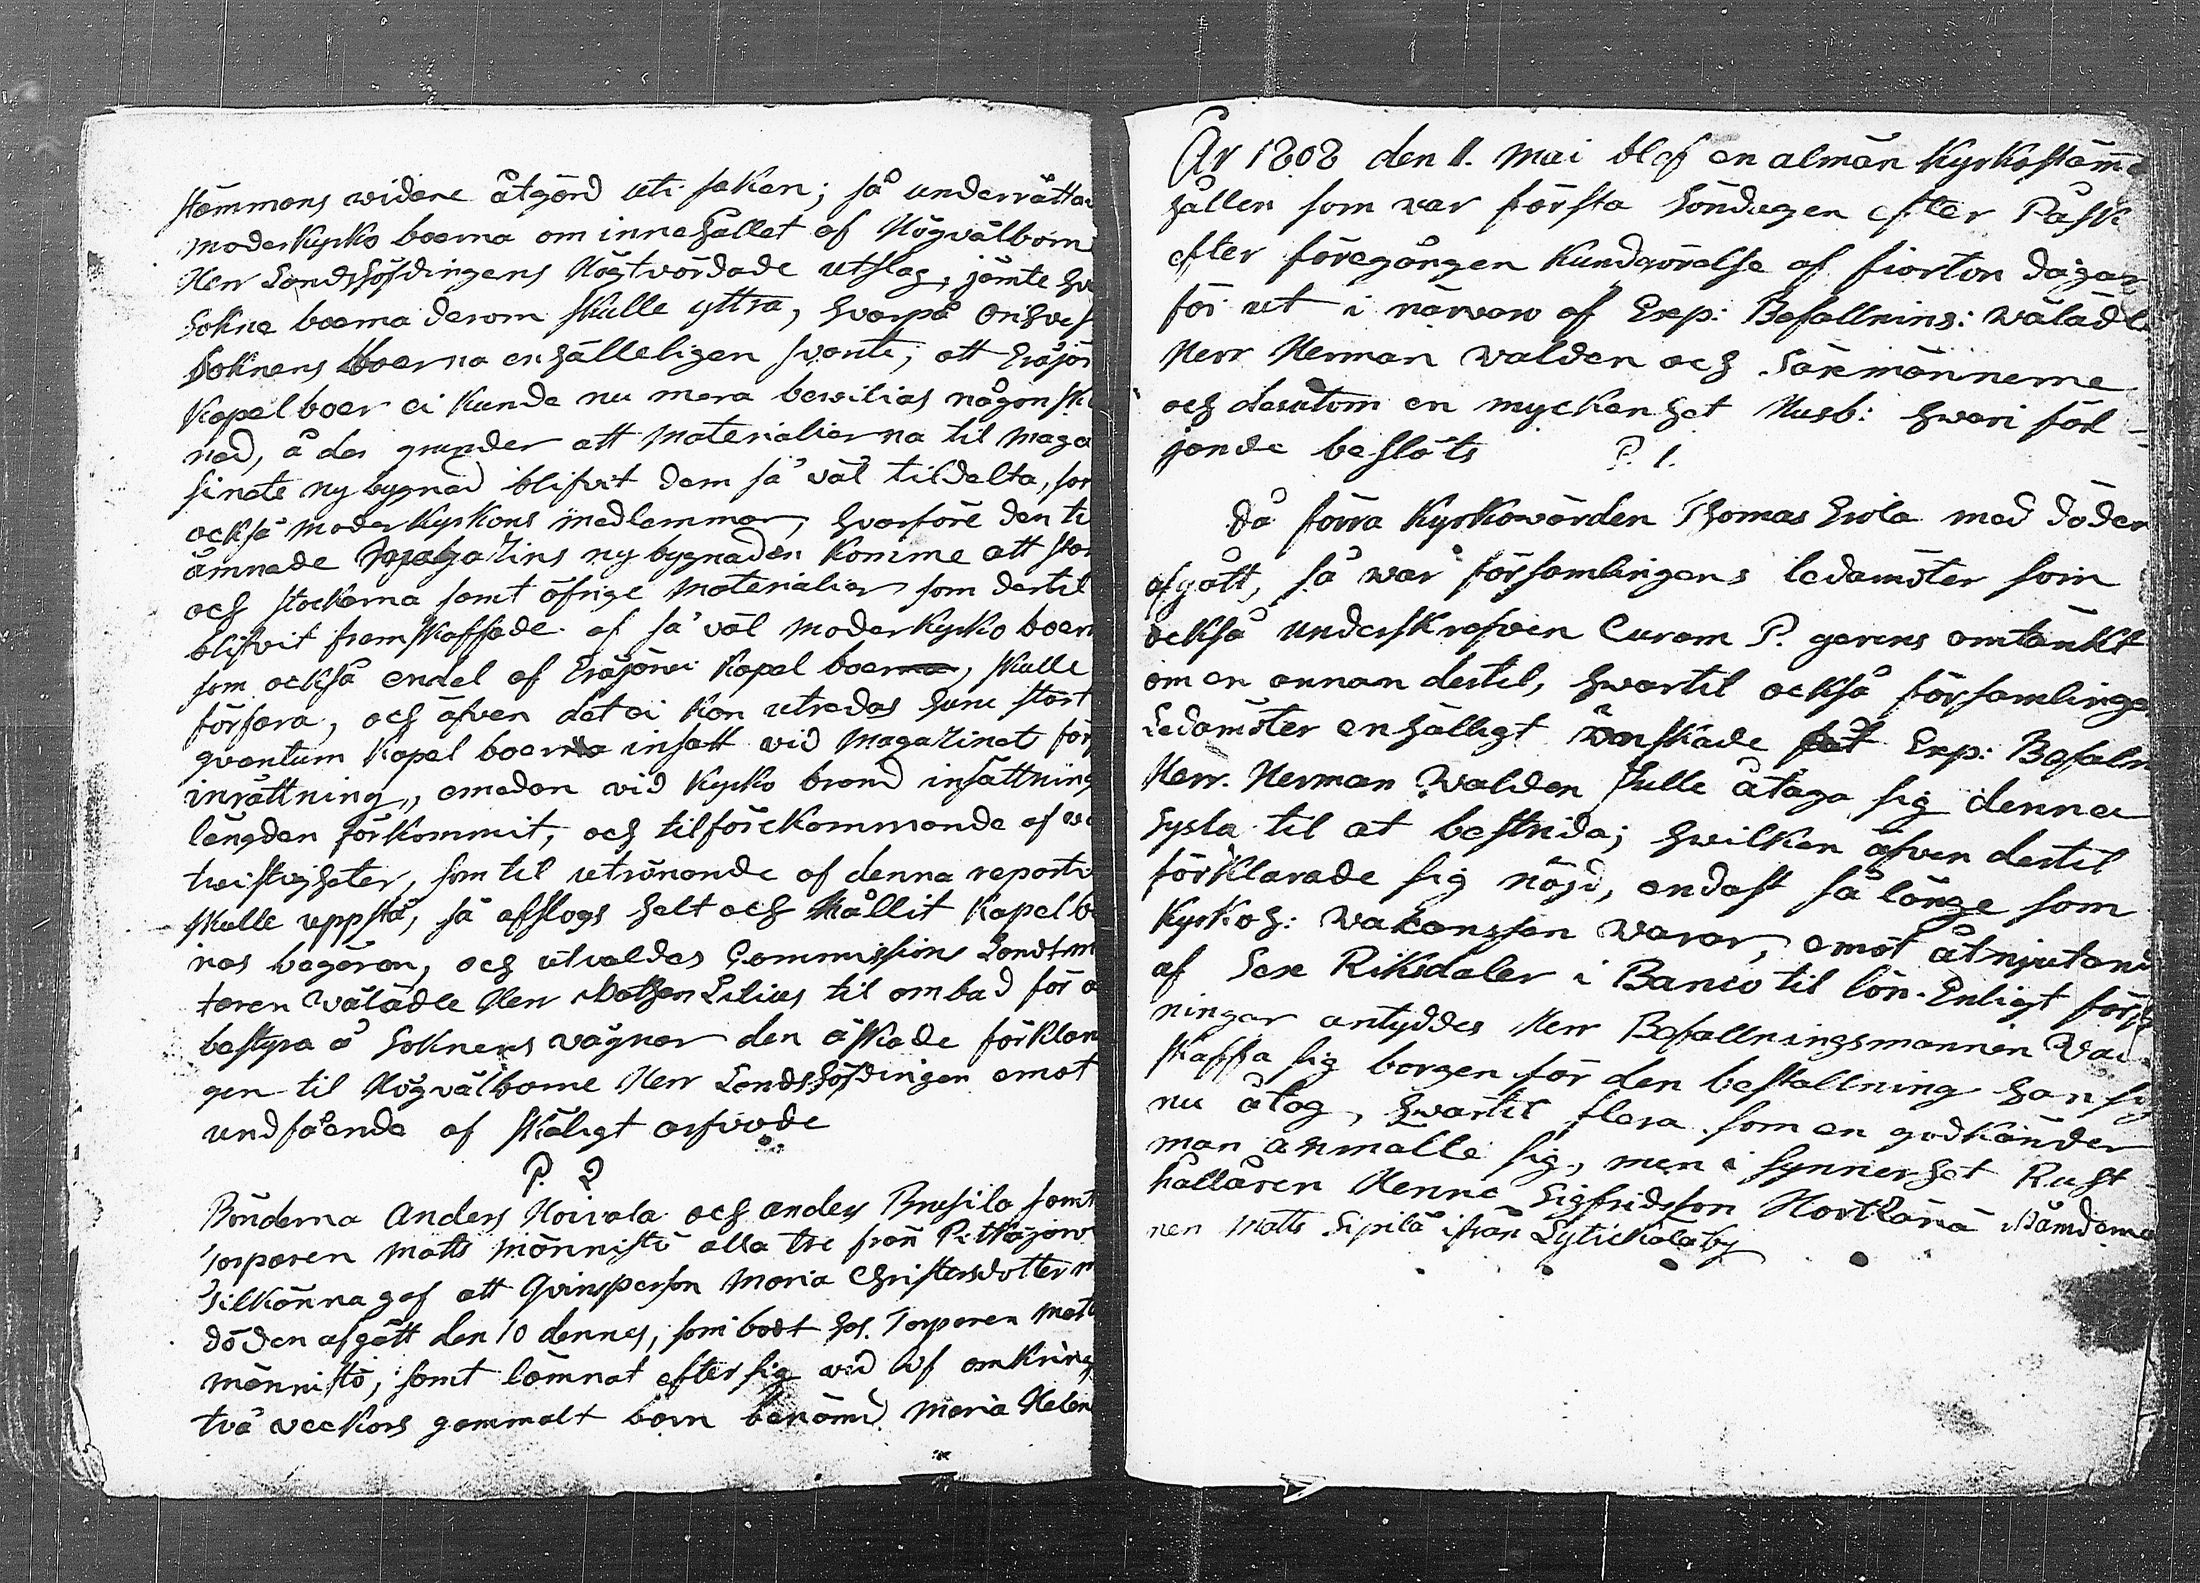 stämmans widare åtgärd uti saken; så underrätta
moderkyrko boerna om innehållet af Högvälborn
Herr Landshöfdingens Högtvördade utslag, jämte hva
Sokne boerna derom skulle yttra, hvarpå Orihves
Soknens Boerna enhälleligen svarte, att Eräjär
Kapelboer ei kunde nu mera bewilias någon sk
nad, å des grunder att materialierna til maga
sinets nybygnad blifvit dem så väl tildelta, som
också moderkyrkans medlemmar, hvarföre den til
ämnade Magazins nybygnaden komme att stan
och stockarna samt öfrige materialier som dertil
blifvit framskaffade af så väl moderkyrko boern
som också endel af Eräjärvi Kapel boerna, skulle
förfara, och äfven det ei kan utredas huru stort
qvantum Kapel boerna insatt vid Magazinet för
inrättning, emedan vid Kyrko brand insättning
längden förkommit, och til förekommande af
twistigheter, som til utrönande af denna reparti
skulle uppstå, så afslogs helt och hållit Kapelbo
nas begäran, och utvaldes Commissions Landtm
taren Wälädle Herr Mathen Lilius til ombud för a
bestyra å Soknens vägnar den äskade förklan
gen til Högvälborne Herr Landshöfdingen emot
undfående af skäligt arfvode
P. 2
Bönderna Anders Hoivala och anders Prusila samt
Torparen Matts Männistö alla tre från Pitkäjärv
Tilkänna gaf att Qvinsperson Maria Christersdotter m
döden afgått den 10 dennes, som bodt hos Torparen Matt
männistö, samt lämnat efter sig vid lif omkring
två veckors gammalt barn benämd Maria Helen
År 1808 den 1. Mai blef en almän Kyrkostäm̄a
hållen som var första Söndagen efter Påsk
efter föregången Kundgörelse af fiorton dagar
för ut i närvaro af Exp: Befallnins: Wälädle
Herr Herman Walden och Sexmännerne
och desutom en myckenhet Husb: hwari föl
jande beslöts P. 1.
Då förra Kyrkowärden Thomas Erola med döden
afgått, så war församlingens ledamöter som
också underskrefven Curam P. gerens omtänkt
om en annan dertil, hwartil också församlingen
Ledamöter enhälligt önskade at Exp: Befaln
Herr. Herman Walden skulle åtaga sig denna
sysla til at bestrida; hwilken äfven dertil
förklarade sig nöjd, endast så länge som
Kyrkoh: wakansen warar, emot åtnjutand
af Sex Riksdaler i Banco til lön. Enligt förjd
ningar antyddes Herr Befallningsmannen Wal-
skaffa sig borgen för den beställning han sig
nu åtog, hwartil flera som en godkänder
man anmälte sig, men i synnerhet Rust
hållaren Henric Sigfridsson Hortlana Nämdema
nen Matts Sipilä ifrån Lytickälä by